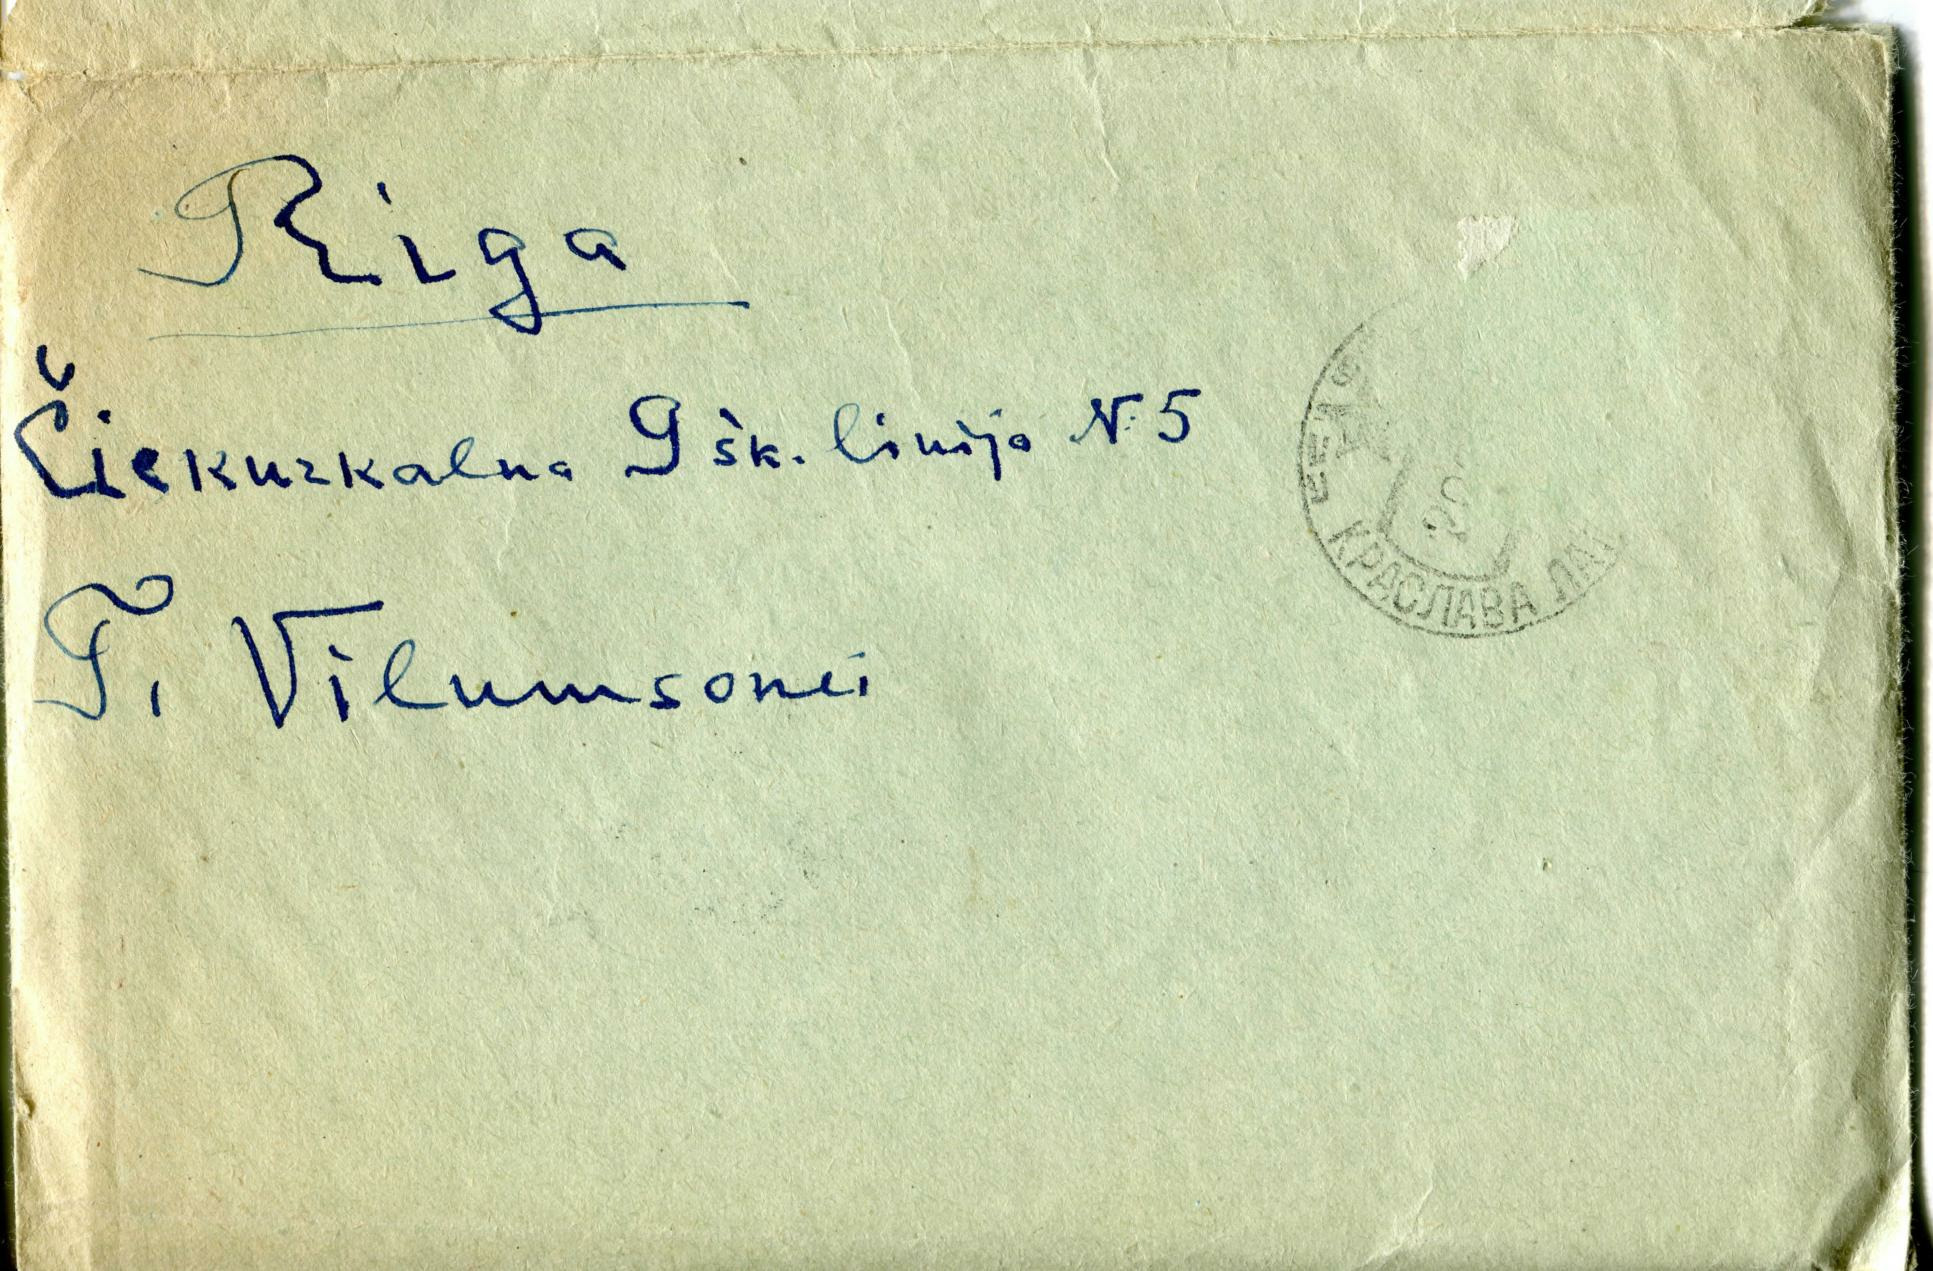 Riga
Čiekurkalna 9 šk. linija № 5
T. Vilumsonei
КРАСЛАВА ЛА